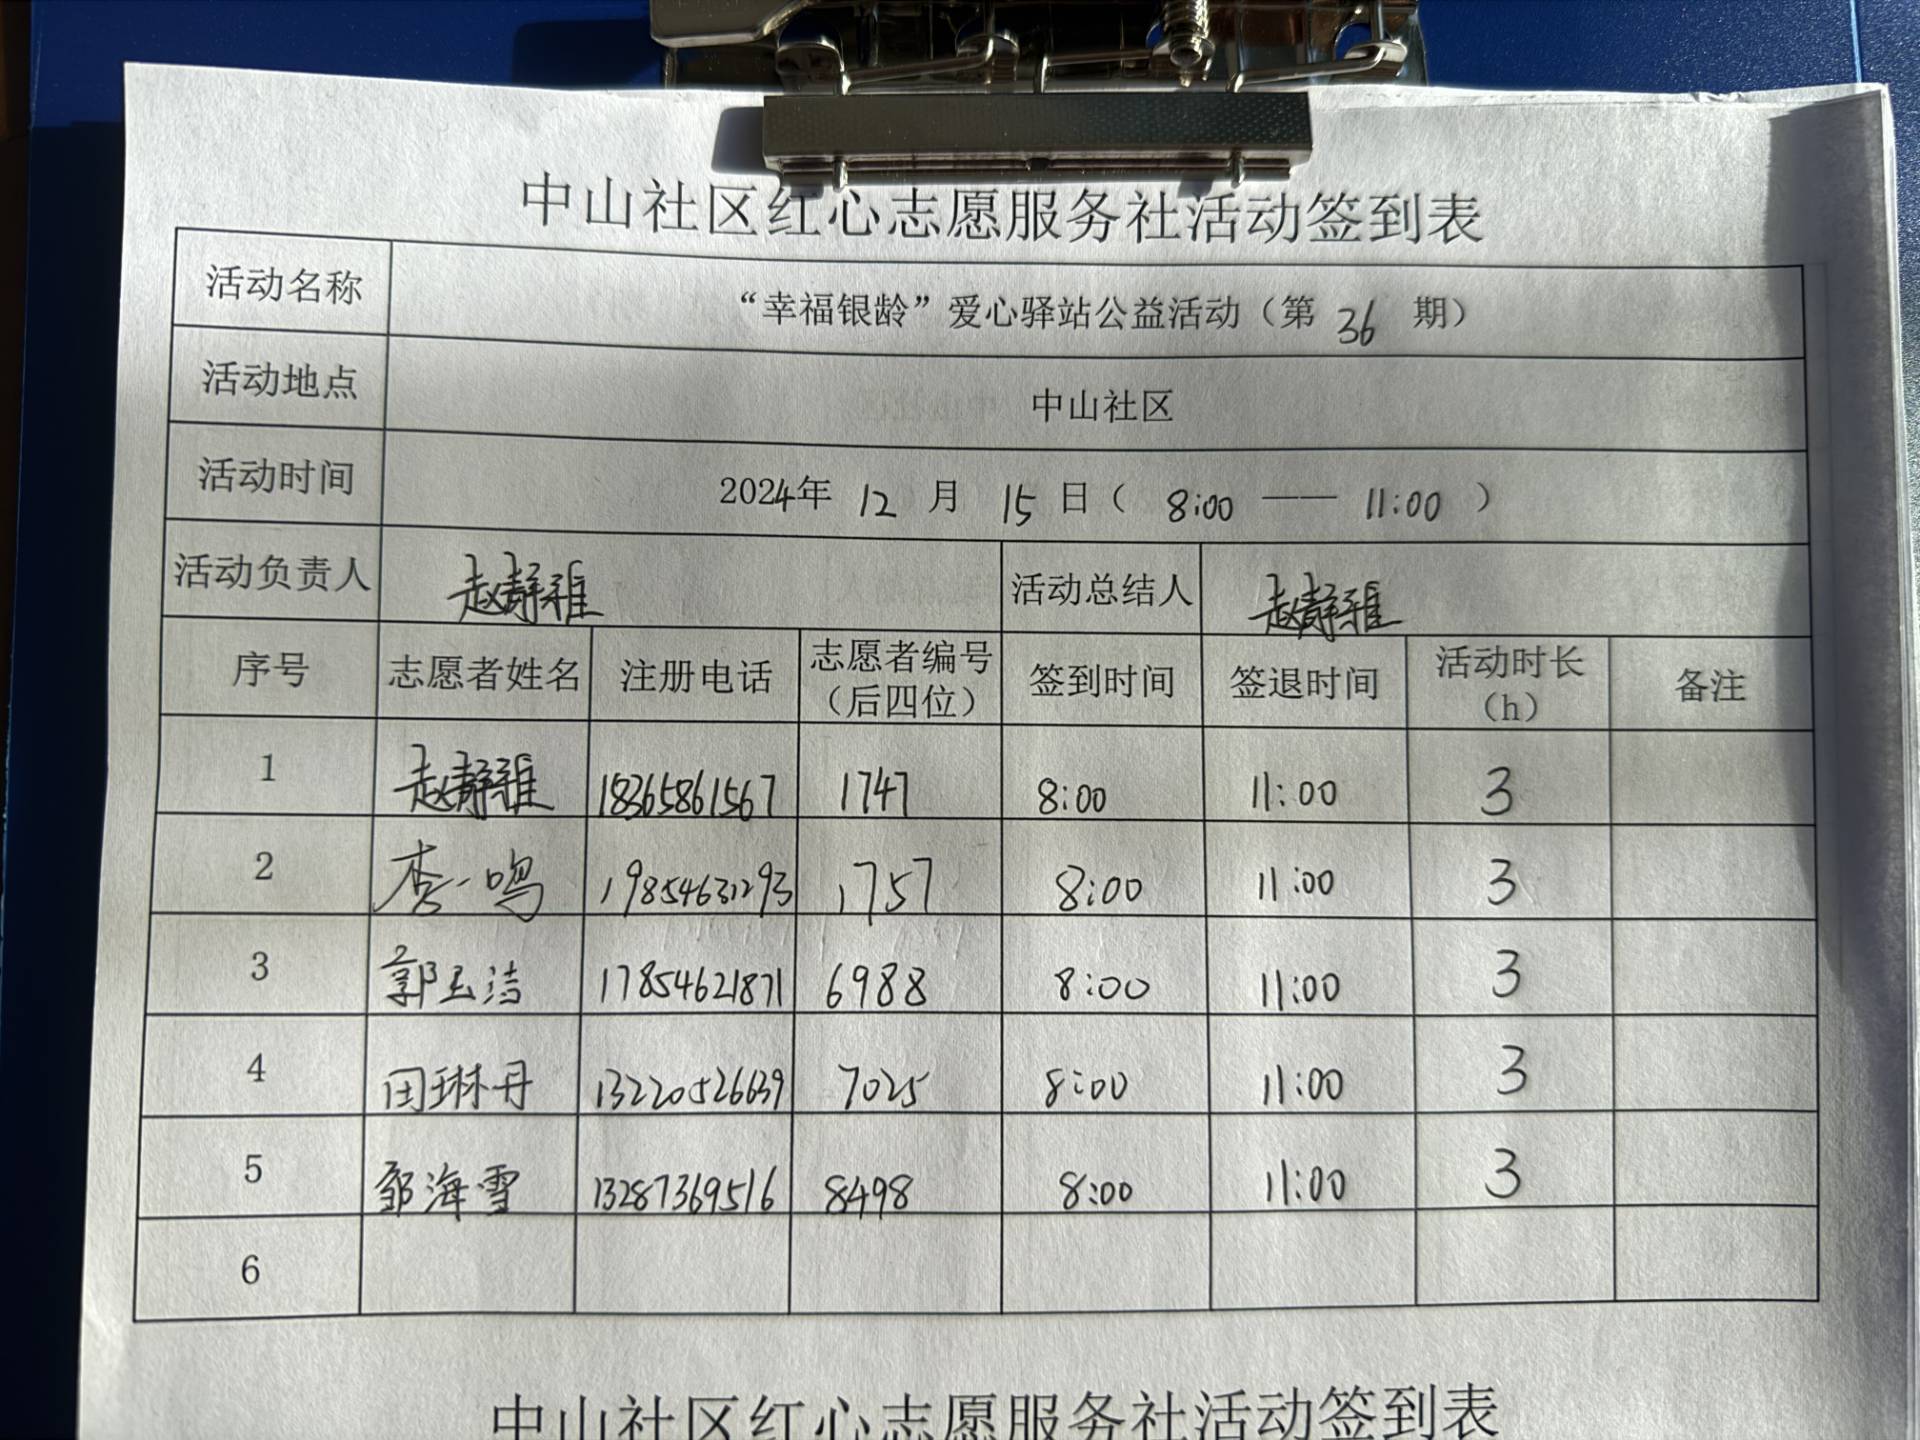 中山社区红心志愿服务社活动签到表
活动名称 “幸福银龄”爱心驿站公益活动（第 36 期）
活动地点 中山社区
活动时间 2024年 12 月 15 日（ 8:00 —— 11:00 ）
活动负责人 赵静雅 活动总结人 赵静雅
序号 志愿者姓名 注册电话 志愿者编号（后四位） 签到时间 签退时间 活动时长（h） 备注
1 赵静雅 18365861567 1747 8:00 11:00 3
2 李一鸣 19854631293 1757 8:00 11:00 3
3 郭玉洁 17854621871 6988 8:00 11:00 3
4 田琳丹 13220526639 7025 8:00 11:00 3
5 邹海雪 13287369516 8498 8:00 11:00 3
6
中山社区红心志愿服务社活动签到表